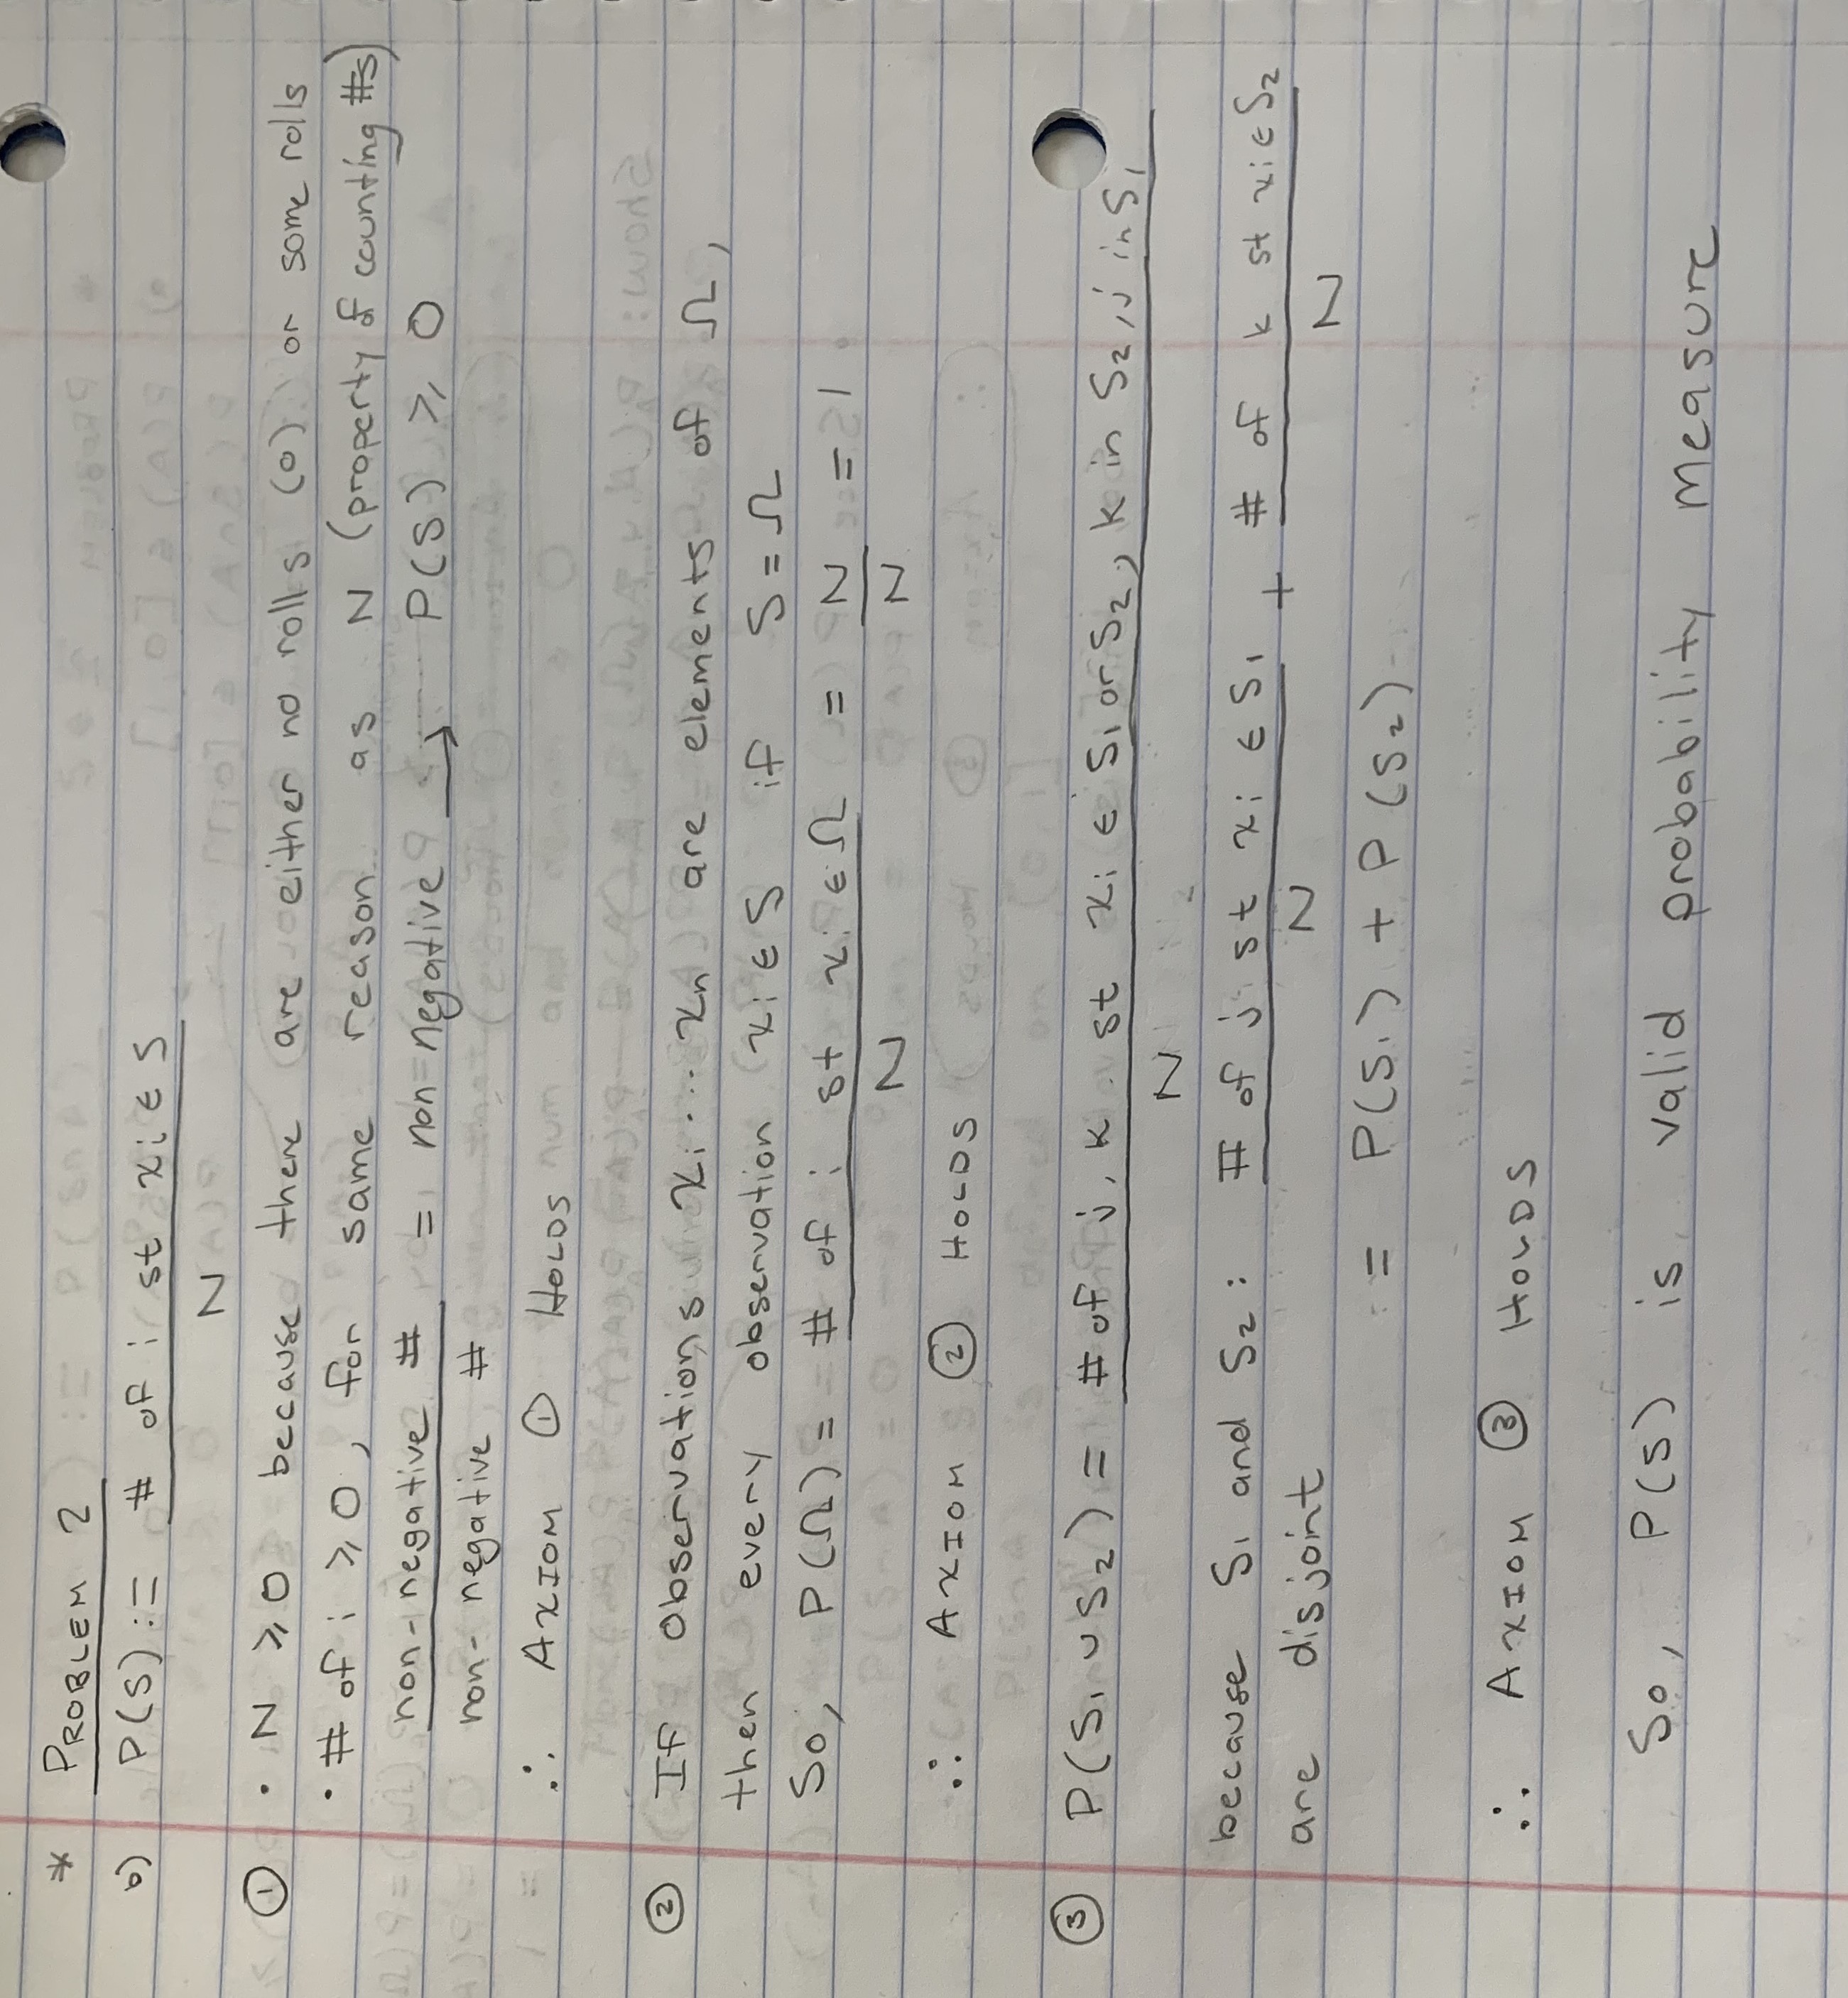 * PROBLEM 2
b) P(S) := # of i st xi ∈ S
N
① • N ⩾ 0 because there are either no rolls (0) or some rolls
• # of i ⩾ 0, for same reason as N (property of counting #s)
non-negative # = non negative → P(S) ⩾ 0
non-negative #
∴ AXIOM ① HOLDS
② If observations xi ... xn are elements of Ω,
then every observation xi ∈ S if S = Ω
So, P(Ω) = # of i st xi ∈ Ω = N = 1
N N
∴ AXIOM ② HOLDS
③ P(S1 ∪ S2) = # of j, k st xi ∈ S1 or S2, k in S2, j in S1
N
because S1 and S2: # of j st xi ∈ S1 + # of k st xi ∈ S2
are disjoint N N
= P(S1) + P(S2)
∴ AXIOM ③ HOLDS
So, P(S) is valid probability measure